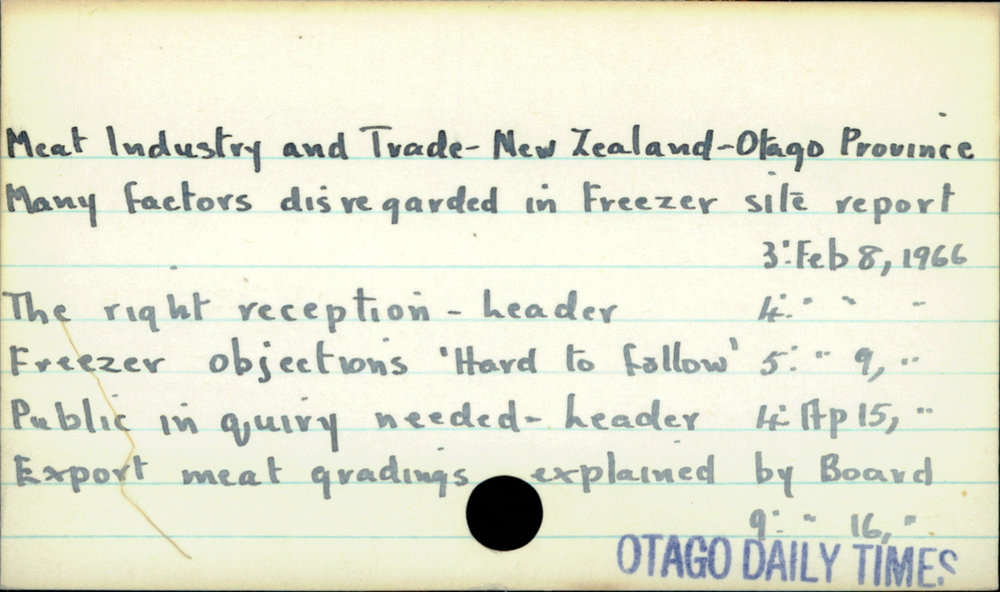 Meat Industry and Trade - New Zealand - Otago Province
Many factors disregarded in Freezer site report
3: Feb 8, 1966
The right reception - header 4: " " "
Freezer objections 'Hard to follow' 5: " 9, "
Public inquiry needed - header 4: Ap 15, "
Export meat gradings explained by Board
9: " 16, "
OTAGO DAILY TIMES